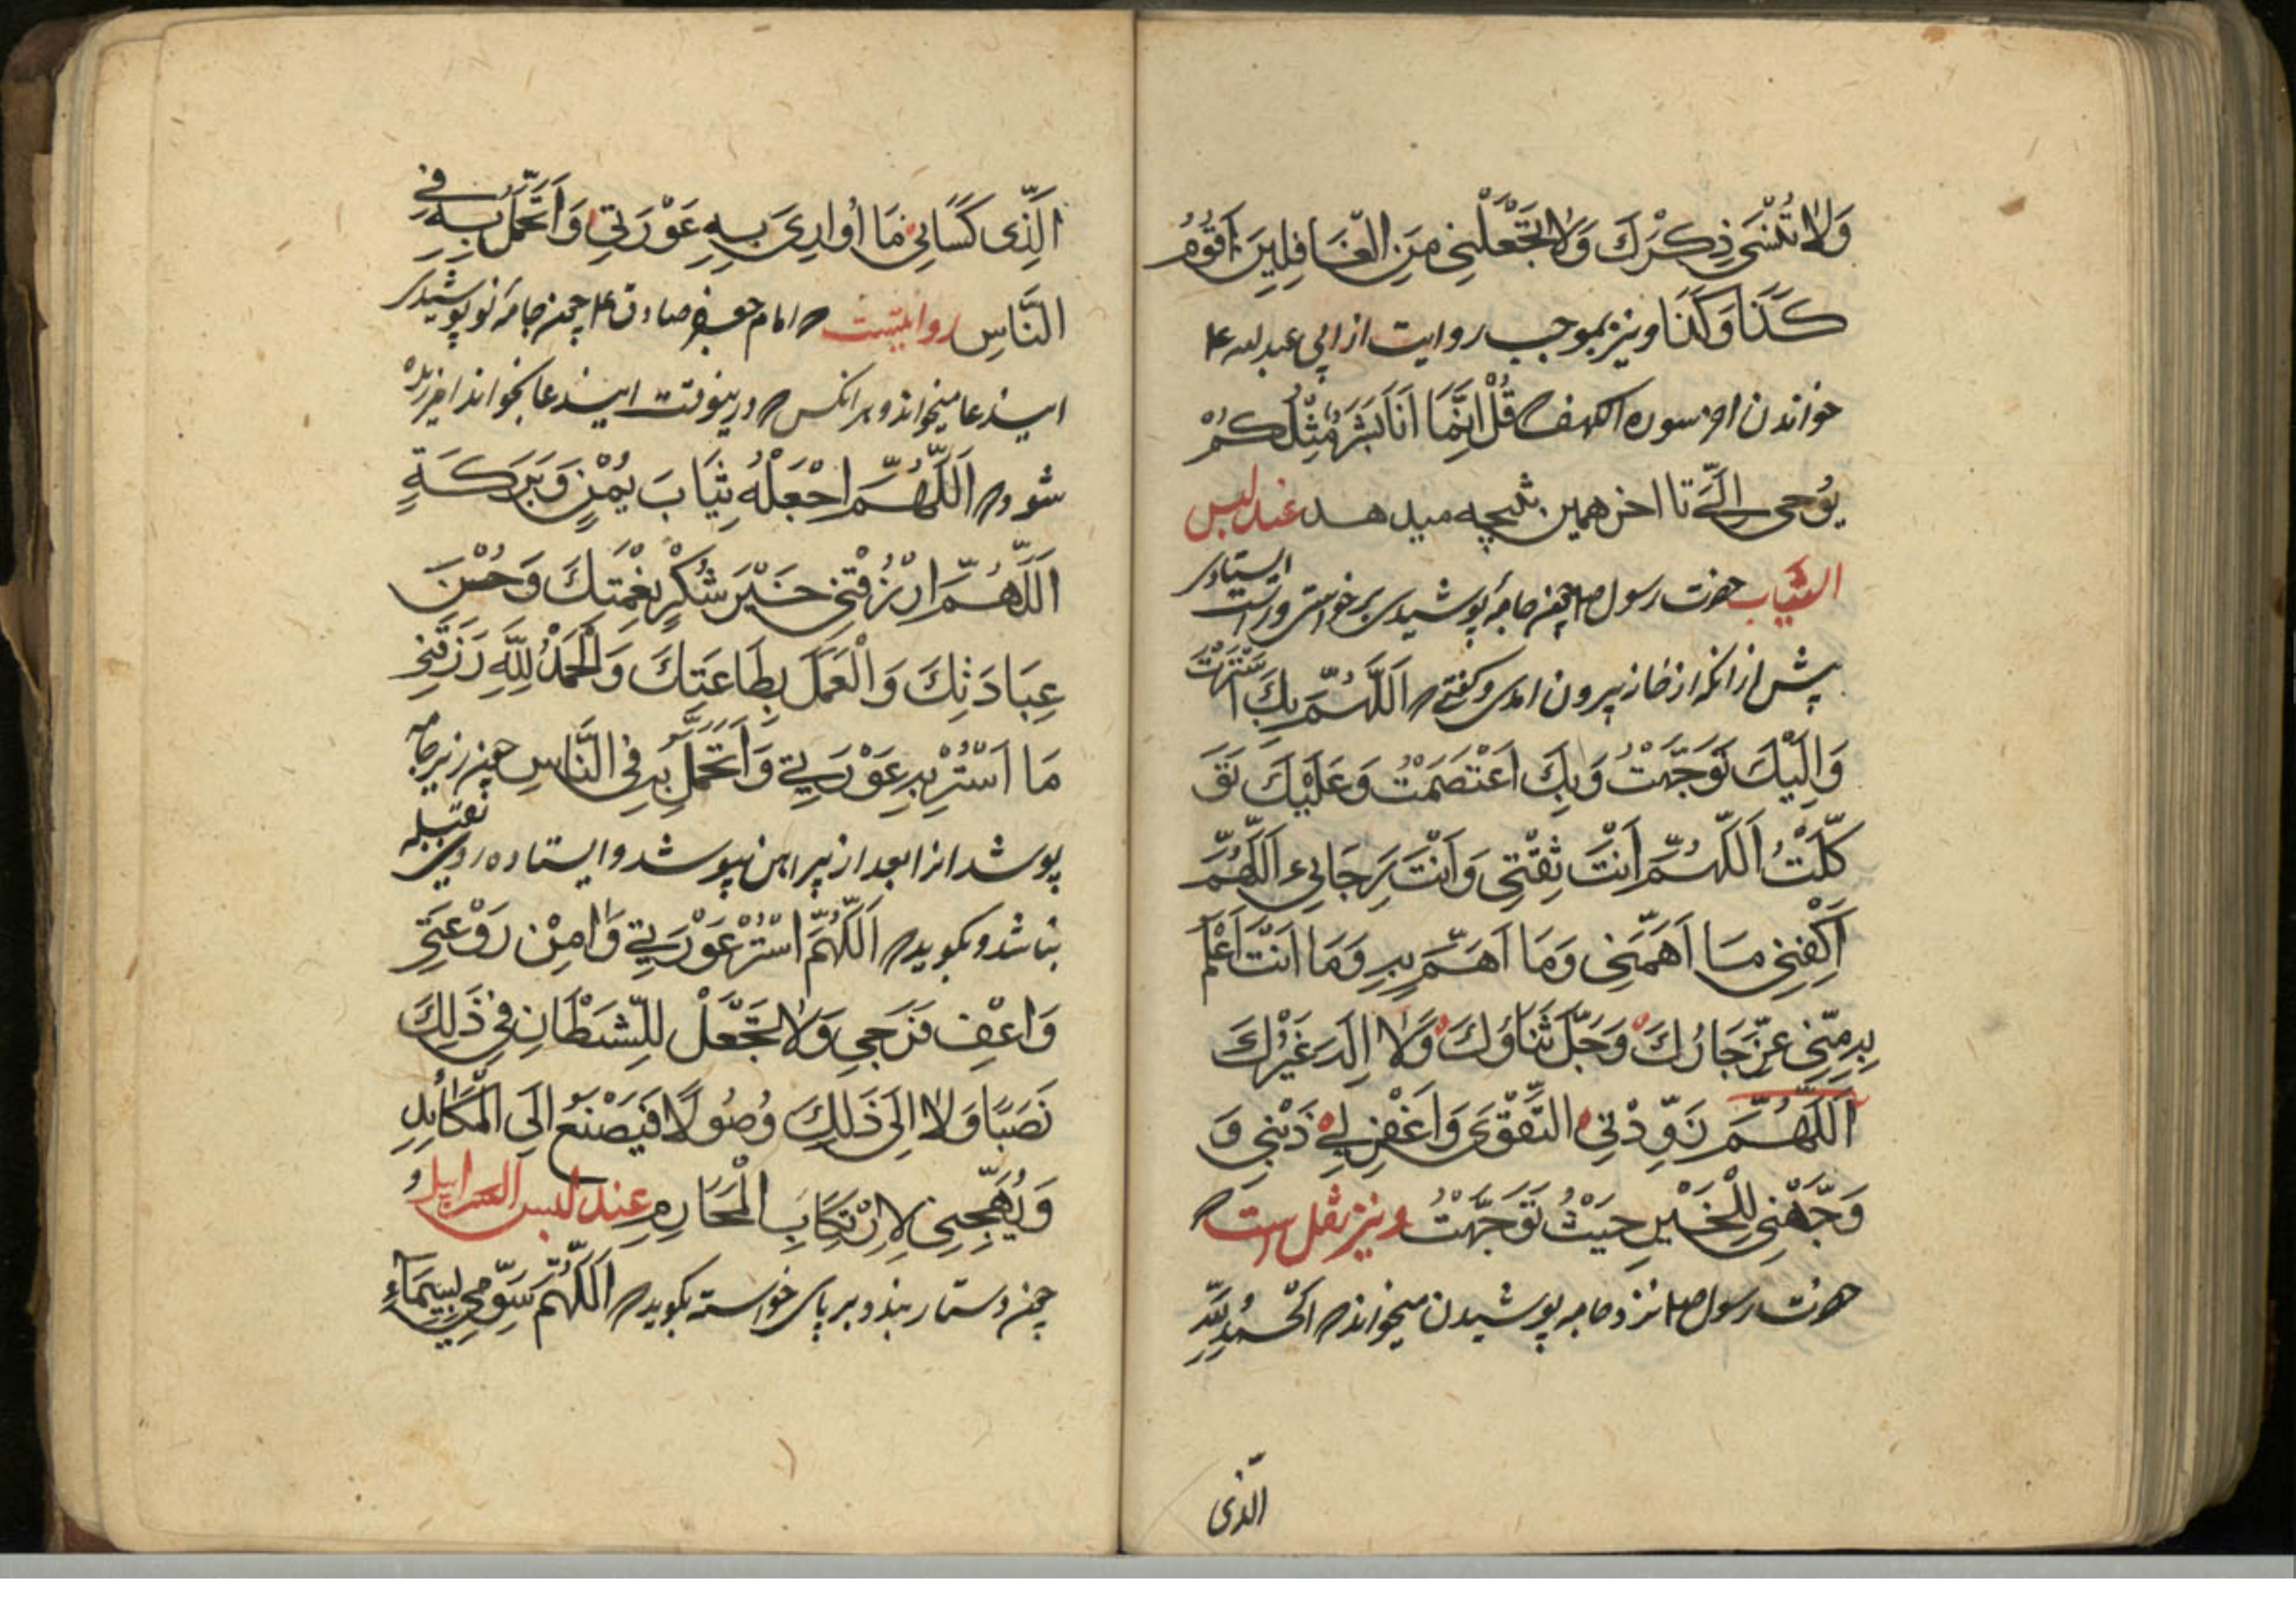 وَلَا تُنْسَىٰ ذِكْرَكَ وَلَا تَجْعَلْنِي مِنَ الْغَافِلِينَ اَقُوْمُ
كَذَا وَكَذَا و نیز بموجب روایت از ابی عبد لله ع
خواندن اخر سوره الکهف قُلْ اِنَّمَا اَنَا بَشَرٌ مِّثْلُكُمْ
يُوْحٰى اِلَىَّ تا اخر همین نتیجه میدهد عند لبس
الثياب حضرت رسول ص چون جامهٔ پوشیدی برخواستی و راست ایستادی
پیش از انکه از خانه بیرون امدی و گفتی اَللّٰهُمَّ بِكَ اسْتَتَرْتُ
وَاِلَيْكَ تَوَجَّهْتُ وَبِكَ اعْتَصَمْتُ وَعَلَيْكَ تَوَ
كَّلْتُ اَللّٰهُمَّ اَنْتَ ثِقَتِي وَاَنْتَ رَجَائِي اَللّٰهُمَّ
اَكْفِنِي مَا اَهَمَّنِي وَمَا اَهَمَّ بِهِ وَمَا اَنْتَ اَعْلَمُ
بِهِ مِنِّي عَزَّ جَارُكَ وَجَلَّ ثَنَاؤُكَ وَلَا اِلٰهَ غَيْرُكَ
اَللّٰهُمَّ زَوِّدْنِي التَّقْوَى وَاغْفِرْ لِي ذَنْبِي وَ
وَجِّهْنِي لِلْخَيْرِ حَيْثُ تَوَجَّهْتُ و نیز نقل است
حضرت رسول ص نزد جامه پوشیدن میخواند اَلْحَمْدُ لِلّٰهِ
الّذی
اَلَّذِى كَسَانِي مَا اُوَارِى بِهِ عَوْرَتِي وَاَتَجَمَّلُ بِهِ فِي
النَّاسِ روایتست امام جعفر صادق ع چون جامهٔ نو پوشیدی
ایندعا میخواند و هر انکس در ینوقت ایندعا بخواند
شود اَللّٰهُمَّ اجْعَلْهُ ثِيَابَ يُمْنٍ وَبَرَكَةٍ
اَللّٰهُمَّ ارْزُقْنِي خَيْرَ شُكْرِ نِعْمَتِكَ وَحُسْنَ
عِبَادَتِكَ وَالْعَمَلَ بِطَاعَتِكَ وَالْحَمْدُ لِلّٰهِ رَزَقَنِي
مَا اَسْتُرُ بِهِ عَوْرَتِي وَاَتَجَمَّلُ بِهِ فِى النَّاسِ چون زیر جامه
پوشد انرا بعد از پیراهن بپوشد و ایستاده روی بقبله
نباشد و بگوید اَللّٰهُمَّ اسْتُرْ عَوْرَتِي وَاٰمِنْ رَوْعَتِي
وَاعْفِفْ فَرْجِي وَلَا تَجْعَلْ لِلشَّيْطَانِ فِي ذٰلِكَ
نَصَبًا وَلَا اِلَى ذٰلِكَ وُصُولًا فَيَصْنَعَ اِلَى الْمَكَائِدِ
وَيُهَيِّجَنِي لِارْتِكَابِ الْمَحَارِمِ عند لبس السراویل و
چون دستار بندد بر پای خواسته بگوید اَللّٰهُمَّ سَوِّمْنِي بِسِيْمَاءِ